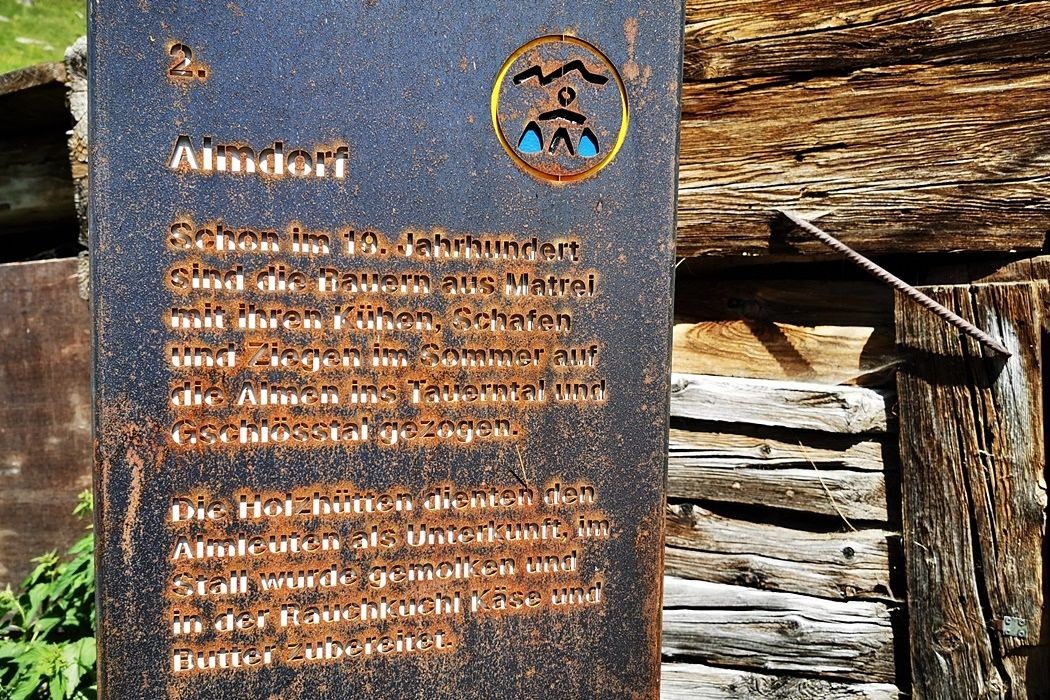 2.
Almdorf
Schon im 19. Jahrhundert
sind die Bauern aus Matrei
mit ihren Kühen, Schafen
und Ziegen im Sommer auf
die Almen ins Tauerntal und
Gschlösstal gezogen.
Die Holzhütten dienten den
Almleuten als Unterkunft, im
Stall wurde gemolken und
in der Rauchkuchl Käse und
Butter zubereitet.